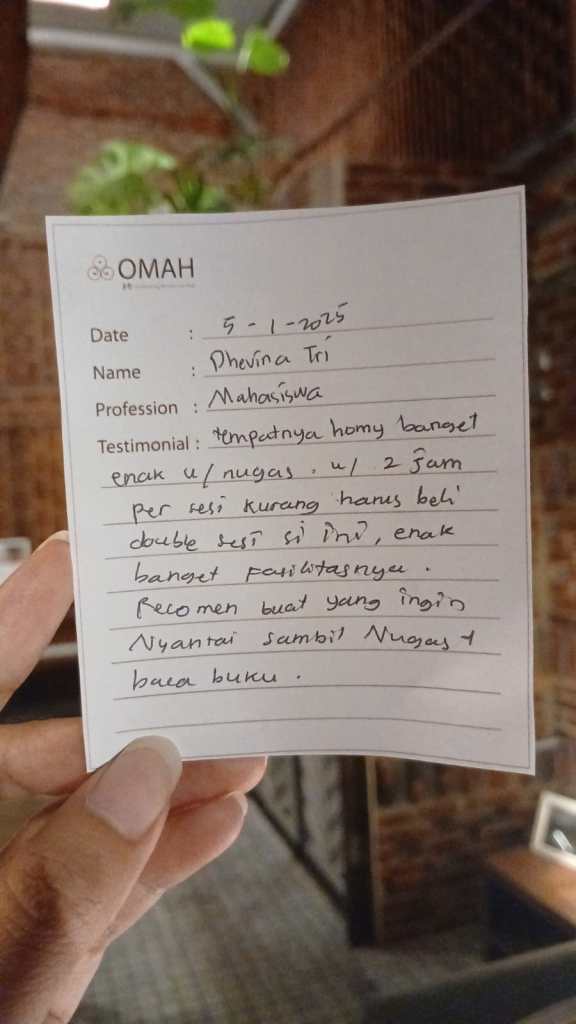 OMAH
Date : 5 - 1 - 2025
Name : Dhevina Tri
Profession : Mahasiswa
Testimonial : tempatnya homy banget
enak u/ nugas. u/ 2 jam
per sesi kurang harus beli
double sesi si ini, enak
banget fasilitasnya.
Recomen buat yang ingin
Nyantai sambil Nugas +
baca buku.